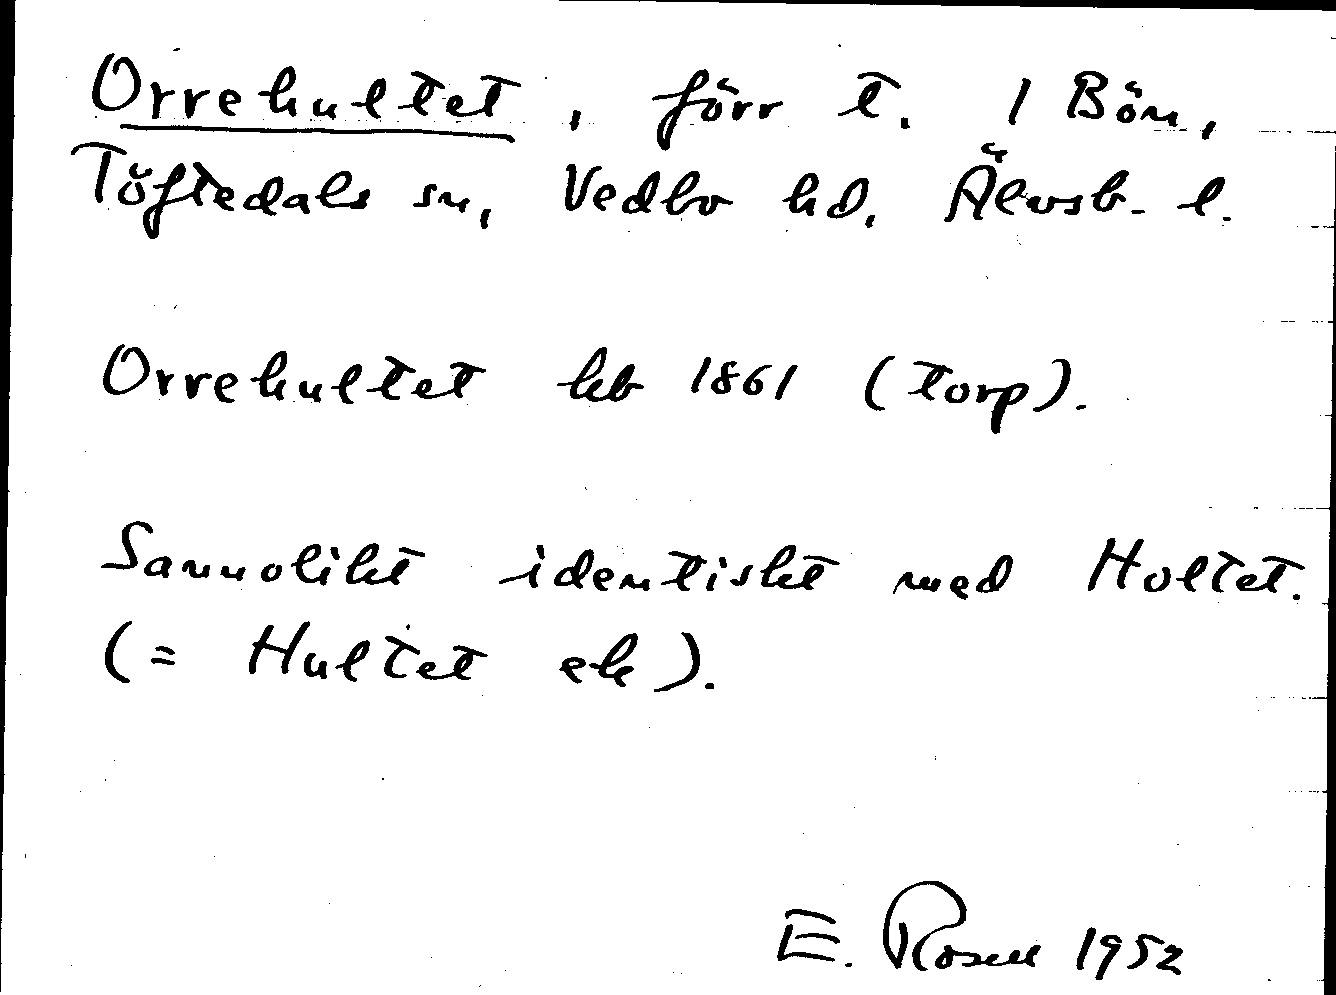 Orrehultet, förr t. 1 Bön,
Töftedals sn, Vedbo hd, Älvsb. l.
Orrehultet hb 1861 (torp).
Sannolikt identiskt med Holtet.
(= Hultet ek).
E. Rosell 1952